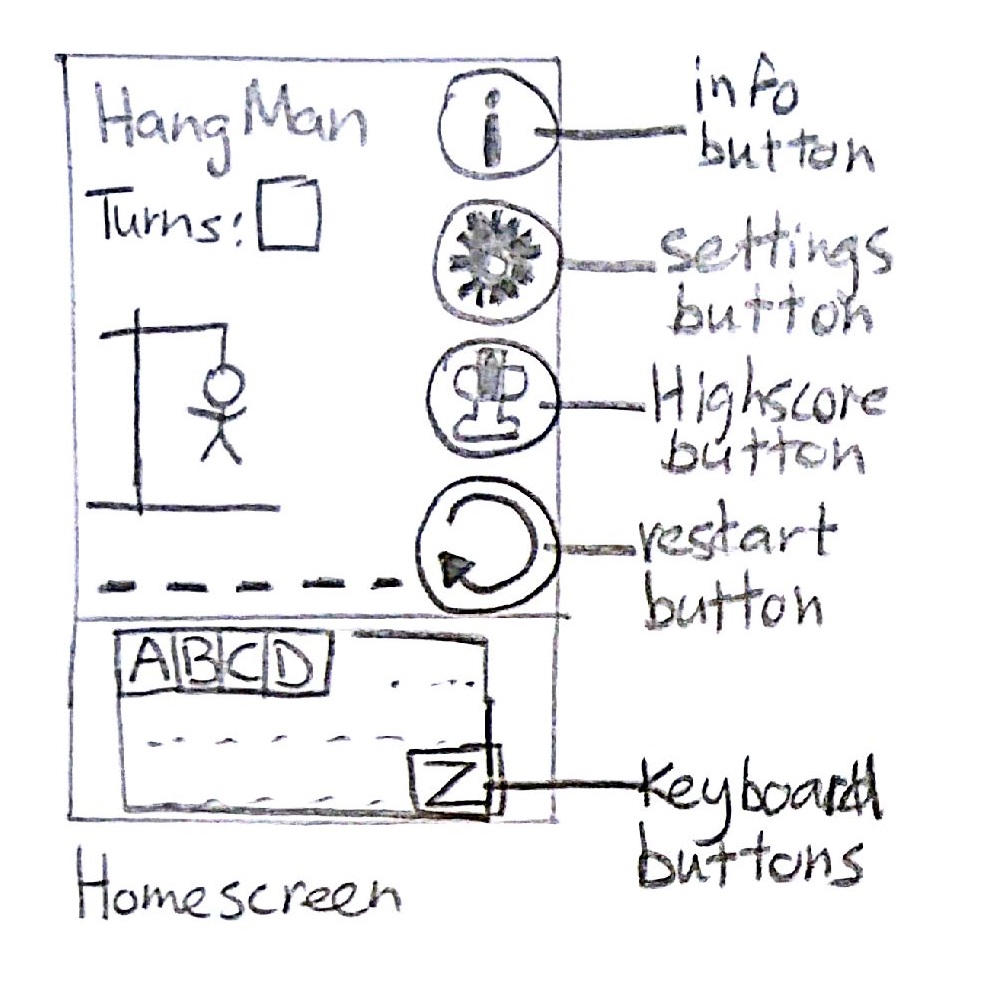 HangMan
Turns:
i
info
button
settings
button
Highscore
button
restart
button
A B C D
Z
Keyboard
buttons
Homescreen